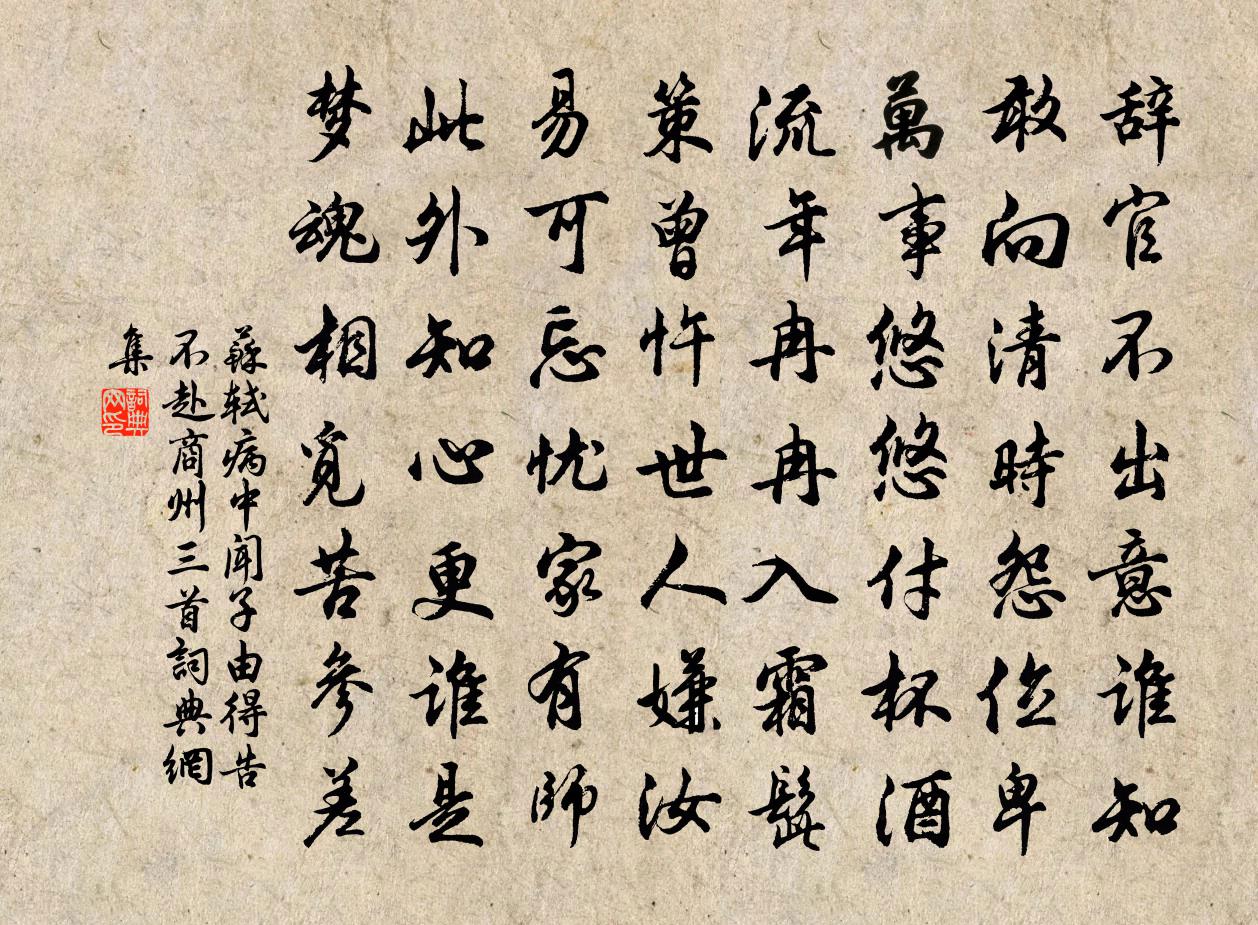 辞官不出意谁知
敢向清時怨位卑
萬事悠悠付杯酒
流年冉冉入霜髭
策曾忤世人嫌汝
易可忘忧家有師
此外知心更谁是
梦魂相覓苦參差
蘇轼病中闻子由得告
不赴商州三首詞典網
集
詞典网印